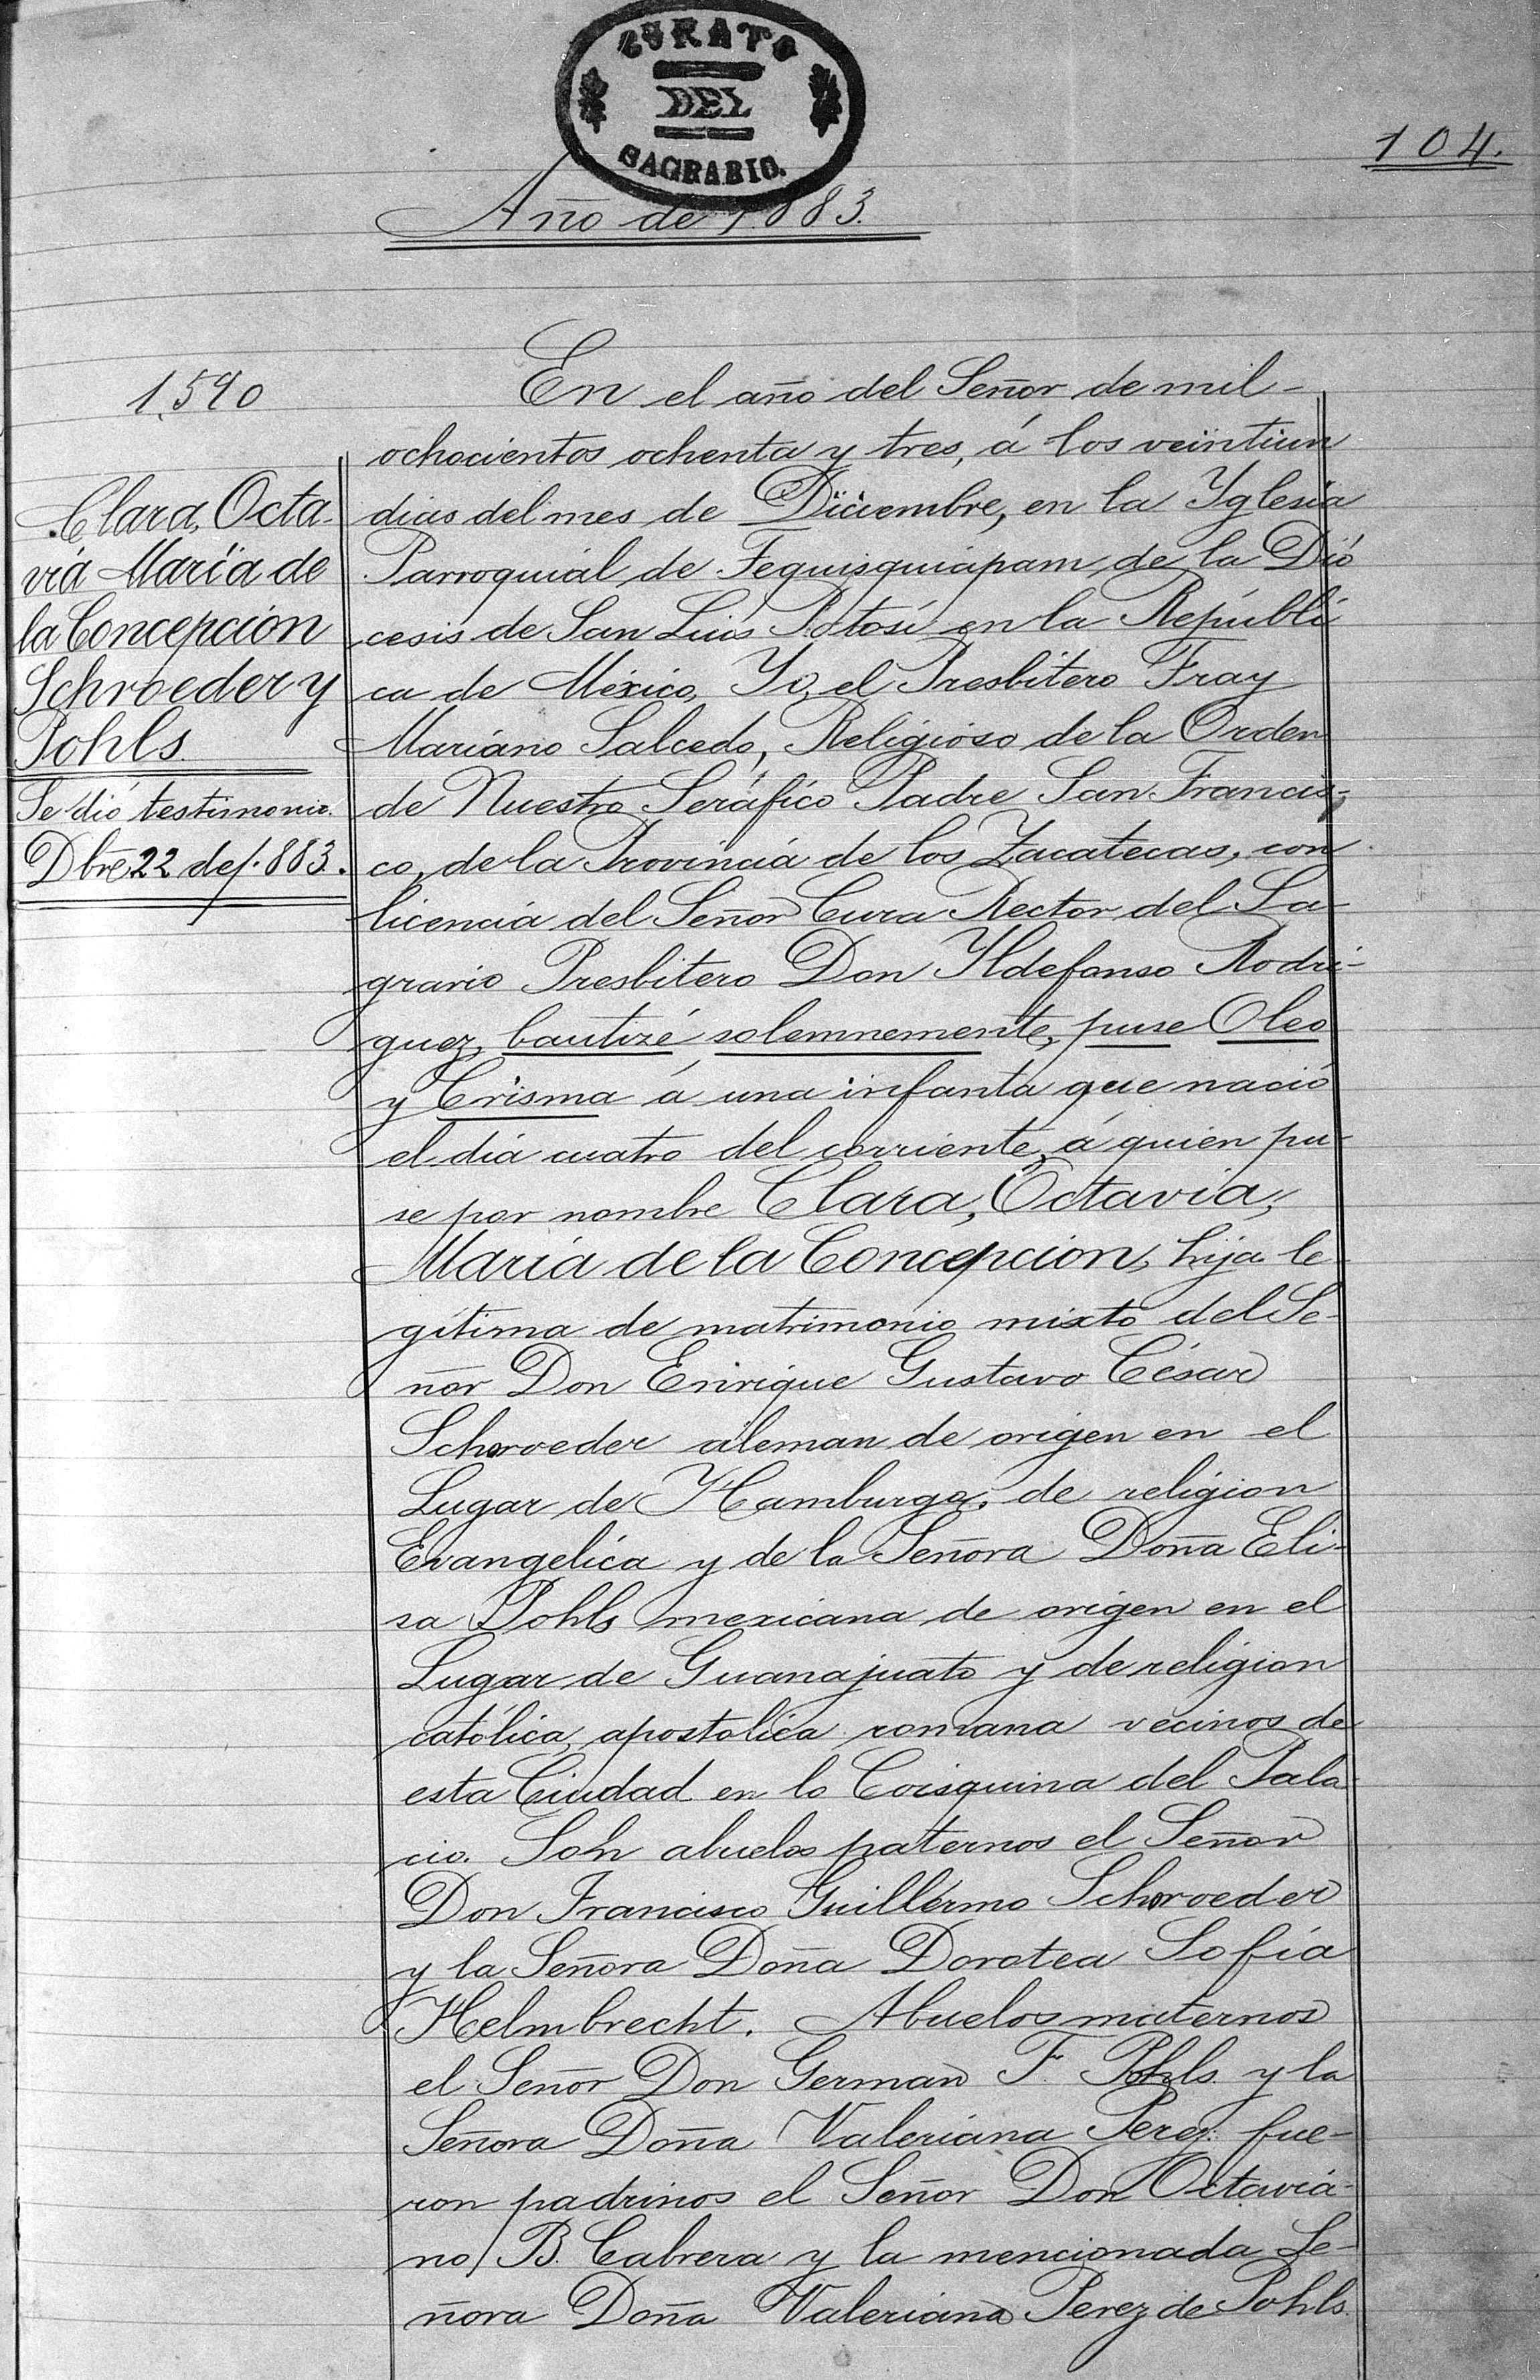 CURATO
DEL
SAGRARIO.
104.
Año de 1.883.
1.590
Clara, Octa-
via María de
la Concepcion
Schroeder y
Pohls.
Se dió testimonio.
Dbre 22 de 1.883.
En el año del Señor de mil-
ochocientos ochenta y tres, á los veintiun
dias del mes de Diciembre, en la Yglesia
Parroquial de Tequisquiapam de la Dió
cesis de San Luis Potosí en la Repúbli
ca de México, Yo, el Presbitero Fray
Mariano Salcedo, Religioso de la Orden
de Nuestro Seráfico Padre San Francis-
co, de la Provincia de los Zacatecas, con
licencia del Señor Cura Rector del Sa-
grario Presbitero Don Yldefonso Rodri-
guez, bautizé solemnemente, puse Oleo
y Crisma á una infanta que nació
el dia cuatro del corriente, á quien pu-
se por nombre Clara, Octavia,
María de la Concepcion, hija le-
gítima de matrimonio mixto del Se-
ñor Don Enrique Gustavo César
Schroeder aleman de origen en el
Lugar de Hamburgo, de religion
Evangelica y de la Señora Doña Eli-
sa Pohls mexicana de origen en el
Lugar de Guanajuato y de religion
católica, apostolica romana vecinos de
esta Ciudad en lo Coisquina del Pala-
cio. Son abuelos paternos el Señor
Don Francisco Guillermo Schroeder
y la Señora Doña Dorotea Sofía
Helmbrecht. Abuelos maternos
el Señor Don German F. Pohls y la
Señora Doña Valeriana Perez: fue-
ron padrinos el Señor Don Octavia-
no B. Cabrera y la mencionada Se-
ñora Doña Valeriana Perez de Pohls.